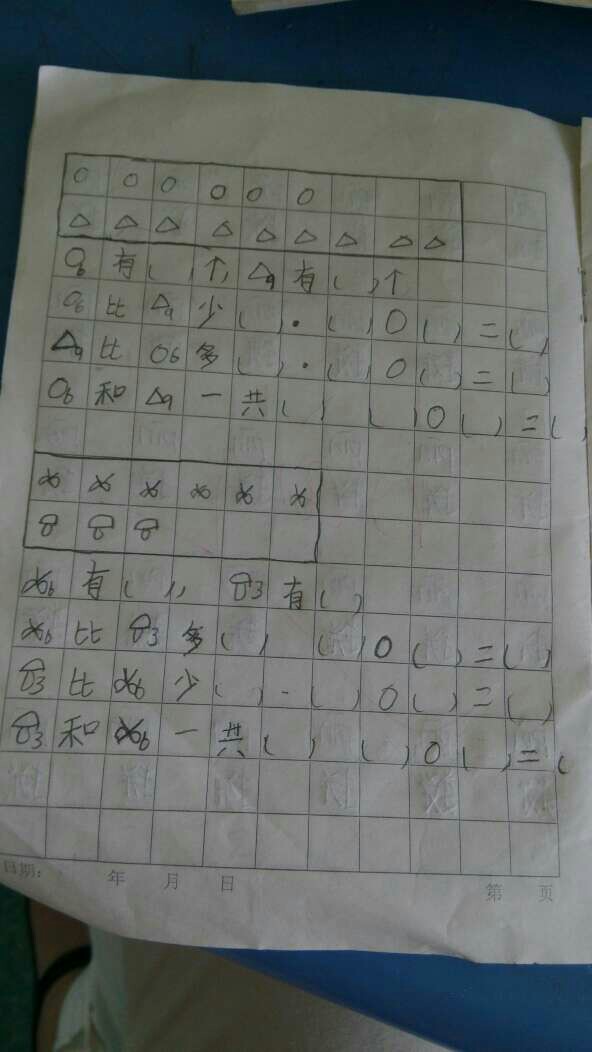 ○ ○ ○ ○ ○ ○
△ △ △ △ △ △ △ △ △
○6 有 ( )个, △9 有 ( )个
○6 比 △9 少 ( ). ( ) ○ ( ) = ( )
△9 比 ○6 多 ( ). ( ) ○ ( ) = ( )
○6 和 △9 一 共 ( ) ( ) ○ ( ) = ( )
6 有 ( ), 3 有 ( )
6 比 3 多 ( ) ( ) ○ ( ) = ( )
3 比 6 少 ( ) - ( ) ○ ( ) = ( )
3 和 6 一 共 ( ) ( ) ○ ( ) = (
日期: 年 月 日 第 页